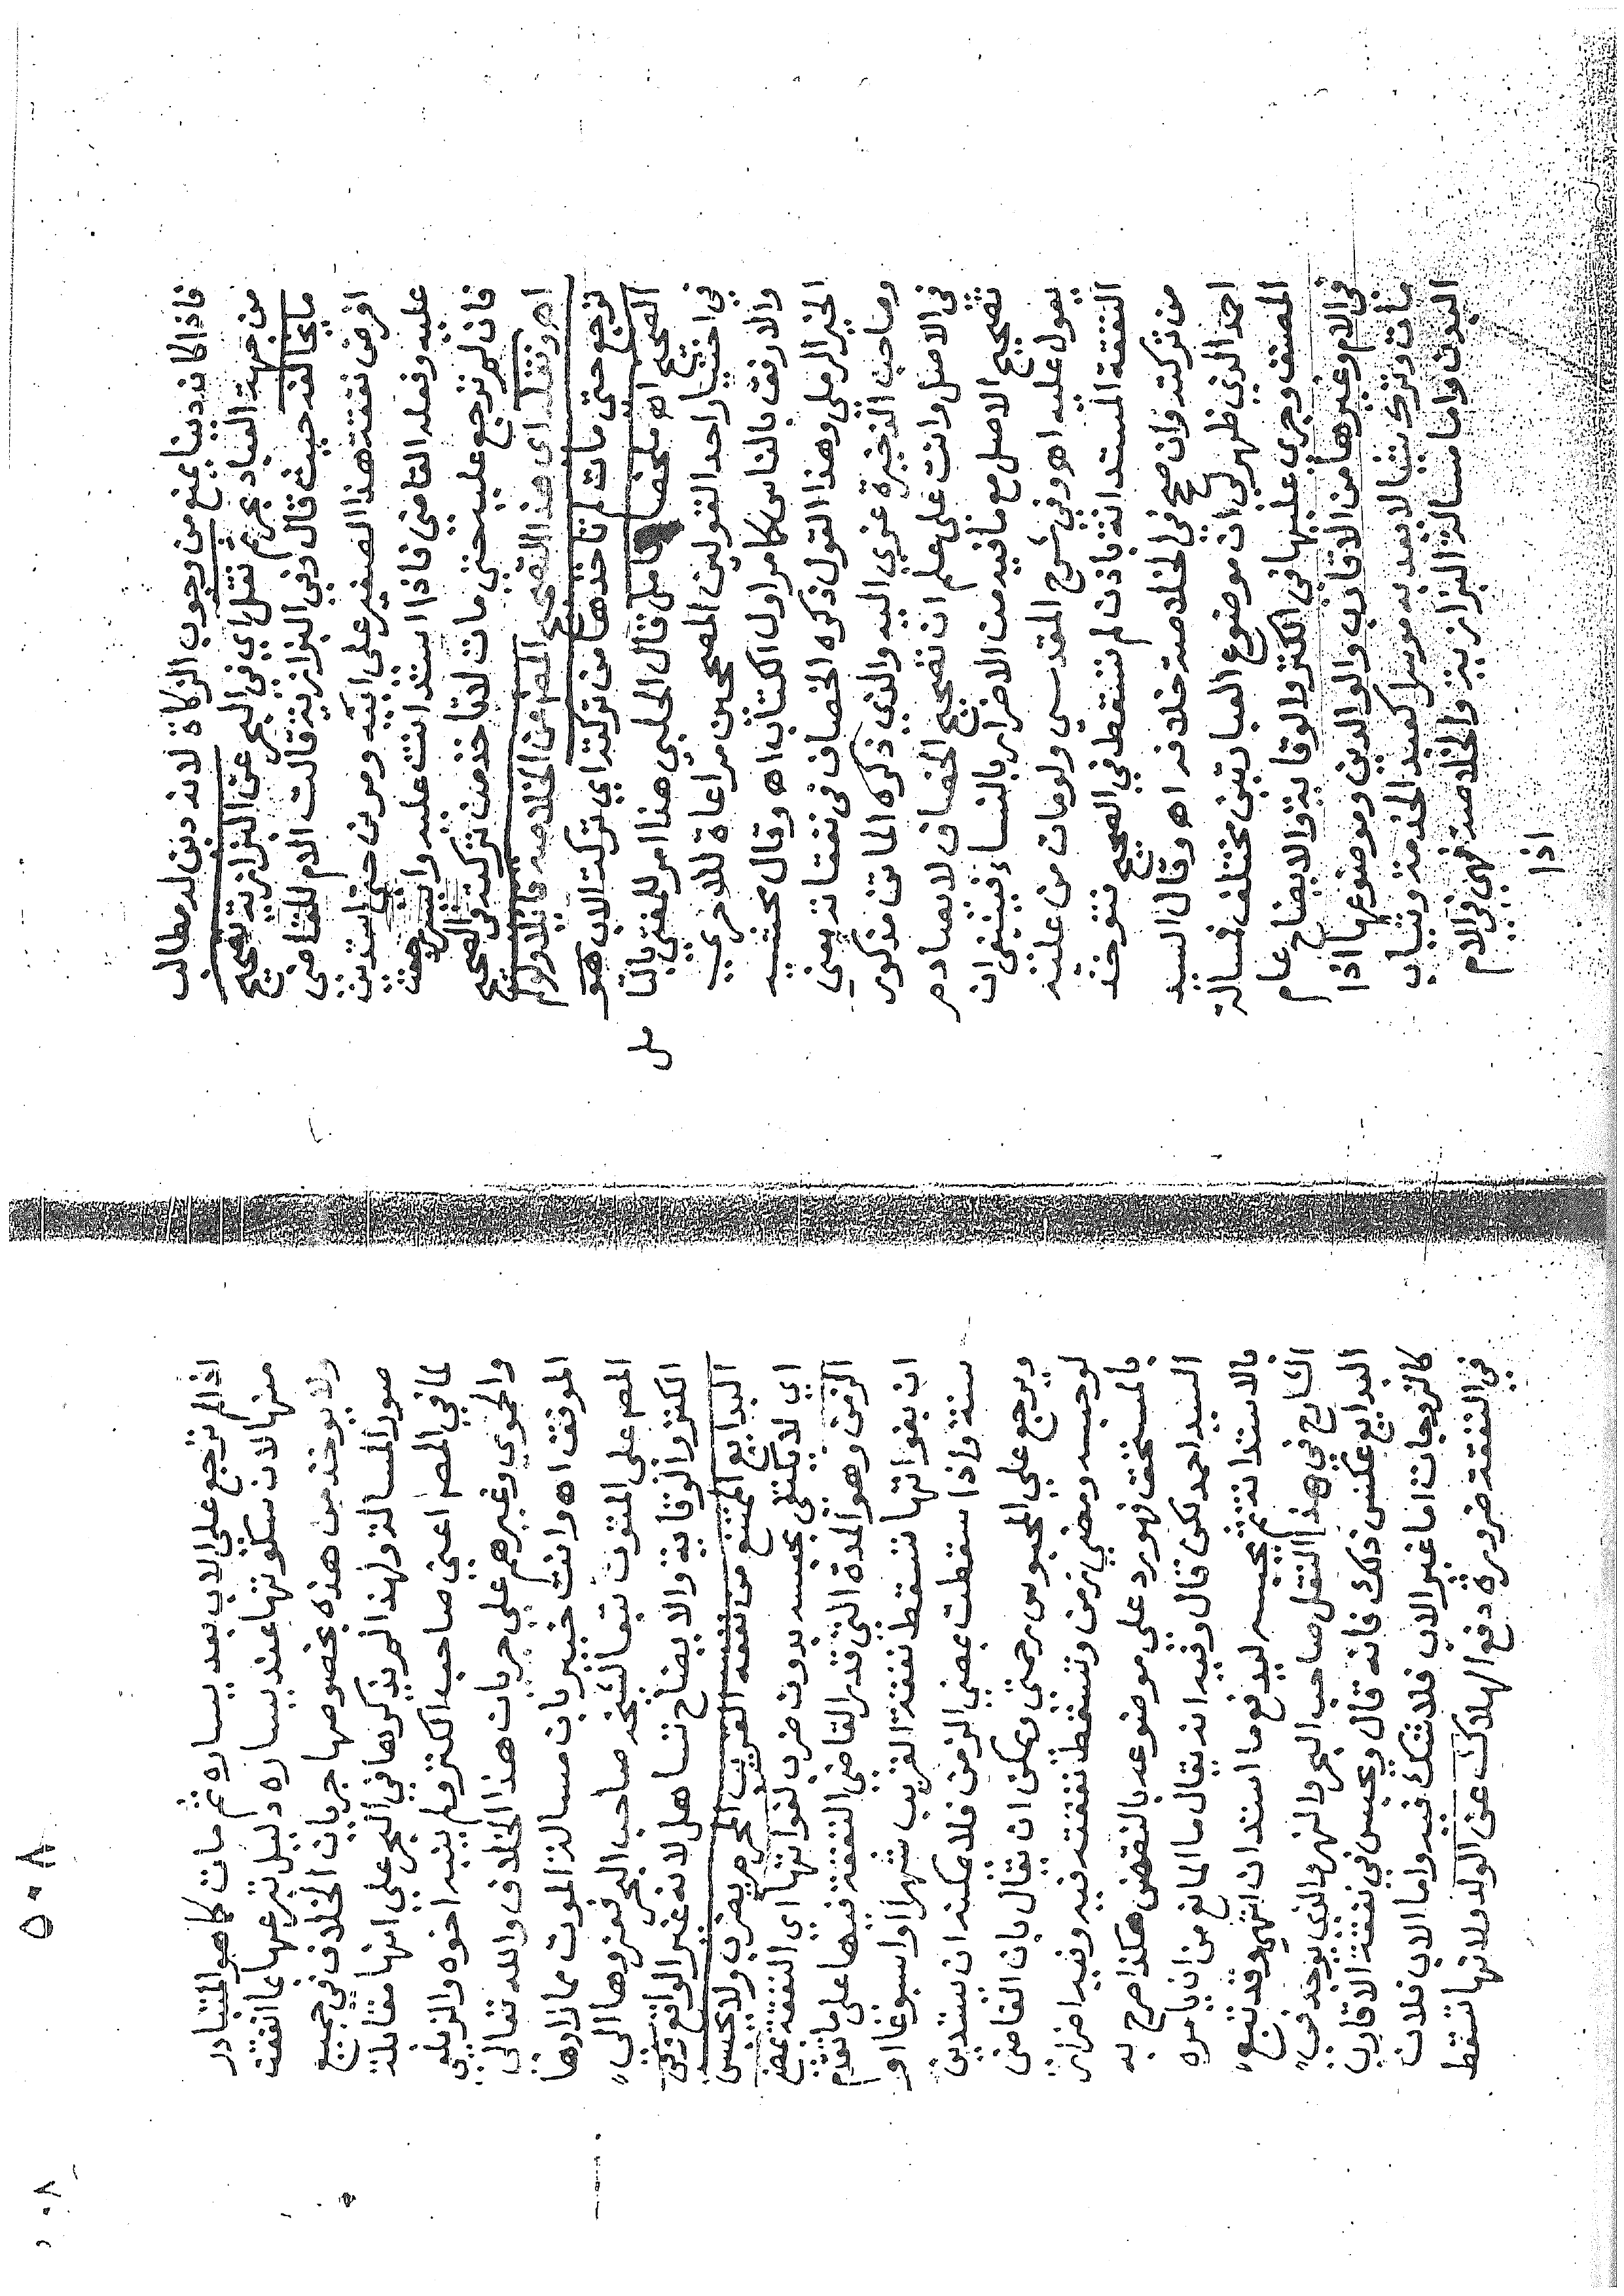 فاذا كانه دينا يمنع من وجوب الزكاة لانه دين له مطالب
من جهة العباد بحر ثم نقل اي في البحر عن البزازية تصحيح
ما يخالفه حيث قال وفي البزازية قالت الام للقاضي
افرض نفقة هذا الصغير على ابيه ومرني حتى استدين
عليه وفعله القاضي فاذا استدانت عليه وايسر رجعت
فان لم ترجع عليه حتى مات لا تاخذ من تركته في الصحيح
اهـ ونقل اي هذا التصحيح المص عن الخلاصة قائلا ولو لم
ترجع حتى مات لم تاخذها من تركته اي تركت الاب هو
الصحيح اهـ ملخصا فتامل قال الحلبي هذا امر للمفتي بالتا
مل
في اختيار احد القولين المصححين مراعاة للاحرى
والارفق بالناس كما مر اول الكتاب اهـ وقال محشيه
الخير الرملي وهذا القول ذكره الخصاف في نفقاته يعني
وصاحب الذخيرة عزى اليه والذي ذكره الماتن مذكور
في الاصل وانت على علم ان تصحيح الخصاف لا يصادم
تصحيح الاصل مع ما فيه من الاضرار بالنساء فينبغي ان
يعول عليه اهـ وفي شرح المقدسي ولو مات من عليه
النفقة المستدانة باذن لم تسقط في الصحيح فتوخذ
من تركته وان صحح في الخلاصة خلافه اهـ وقال السيد
احمد الذي ظهر لي ان موضوع العبارتين مختلف فمسالة
المصنف وجرى عليها في الكنز والوقاية والايضاح عام
في الام وغيرها من الاقارب والوالدين وموضوعها اذا
مات وترك شيا لا يعد به موسرا كعبد الخدمة وثياب
البدن واما مسالة البزازية والخلاصة فهي في الام
اذا
٥٠٨
اذا لم ترجع على الاب بعد يساره ثم مات كما هو المتبادر
منها لان سكوتها عند يساره دليل تبرعها بما انفقت
ولا يوخذ من هذه بخصوصها جريان الخلاف في جميع
صور المسالة ولهذا لم يذكرها في البحر على انها مقابلة
لما في المص اعني صاحب الكنز ولم ينبه اخوه والزيلعي
والحموي وغيرهم على جريان هذا الخلاف والله تعالى
الموفق اهـ وانت خبير بان مسالة الموت مما زادها
المص على المتون تبعا لشيخه صاحب البحر فعزوها الى
الكنز والوقاية والايضاح تساهل لانه غير الواقع وفي
البدايع الممتنع من نفقة القريب المحرم يضرب ولا يحبس
اي لا يكتفى بحبسه بدون ضرب لفواتها اي النفقة بمضي
الزمن وهو المدة التي قدر القاضي النفقة فيها على ما تقدم
ان بفواتها تسقط نفقة القريب شهرا او اسبوعا او
سنة واذا سقطت بمضي الزمن فلا مكنه ان تستدين
ويرجع على المحبوس رحمتي ويمكن ان يقال بان القاضي
لو حبسه ومضى زمن وتسقط نفقته فيه وفيه اضرار
بالمستحق فهو رد على موضوعه بالنقض هكذا صرح به
السيد احمد لكن قال وفيه انه يقال ما المانع من ان يامره
بالاستدانة ثم يحبسه ليدفع ما استدان انتهى وقد تبع
الشارح في هذا النقل صاحب البحر والنهر والذي يوخذ من
البدايع عكس ذلك فانه قال ويحبس في نفقة الاقارب
كالزوجات اما غير الاب فلا شك فيه واما الاب فلان
في النفقة ضرورة دفع الهلاك عن الولد ولانها تسقط